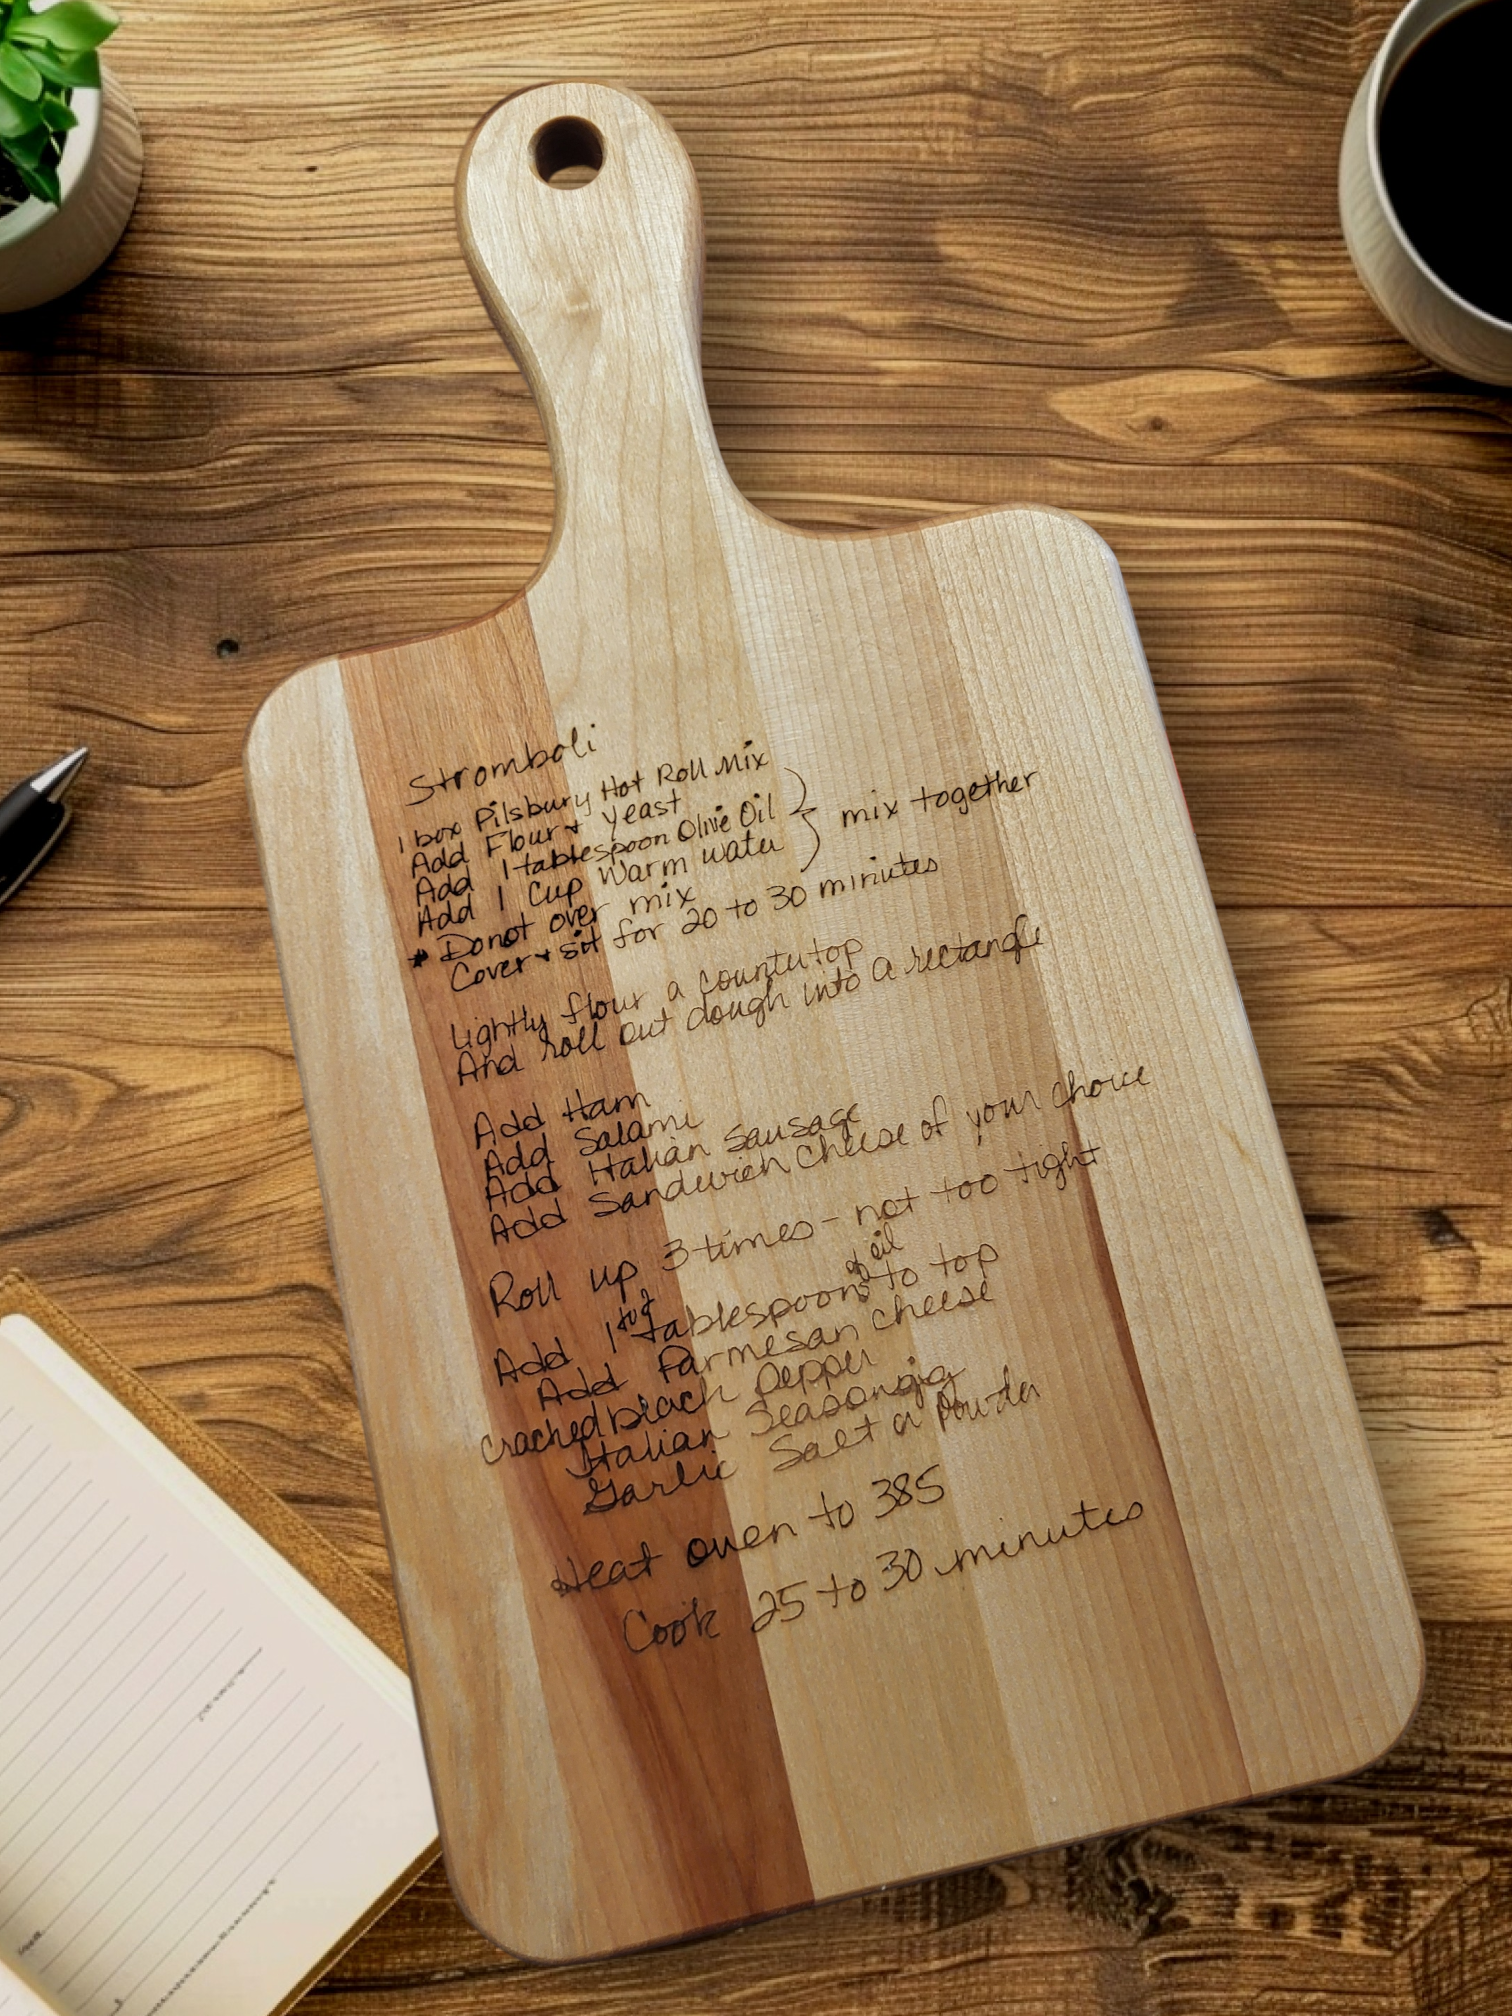 Stromboli
1 box Pilsbury Hot Roll Mix
Add Flour + yeast
Add 1 tablespoon Olive Oil
Add 1 Cup Warm water } mix together
* Donot over mix
Cover + sit for 20 to 30 minutes
Lightly flour a countertop
And roll out dough into a rectangle
Add Ham
Add Salami
Add Italian Sausage
Add Sandwich Cheese of your choice
Roll up 3 times - not too tight
Add 1 tablespoons of oil to top
Add Parmesan cheese
cracked black pepper
Italian Seasoning
Garlic Salt or Powder
Heat oven to 385
Cook 25 to 30 minutes